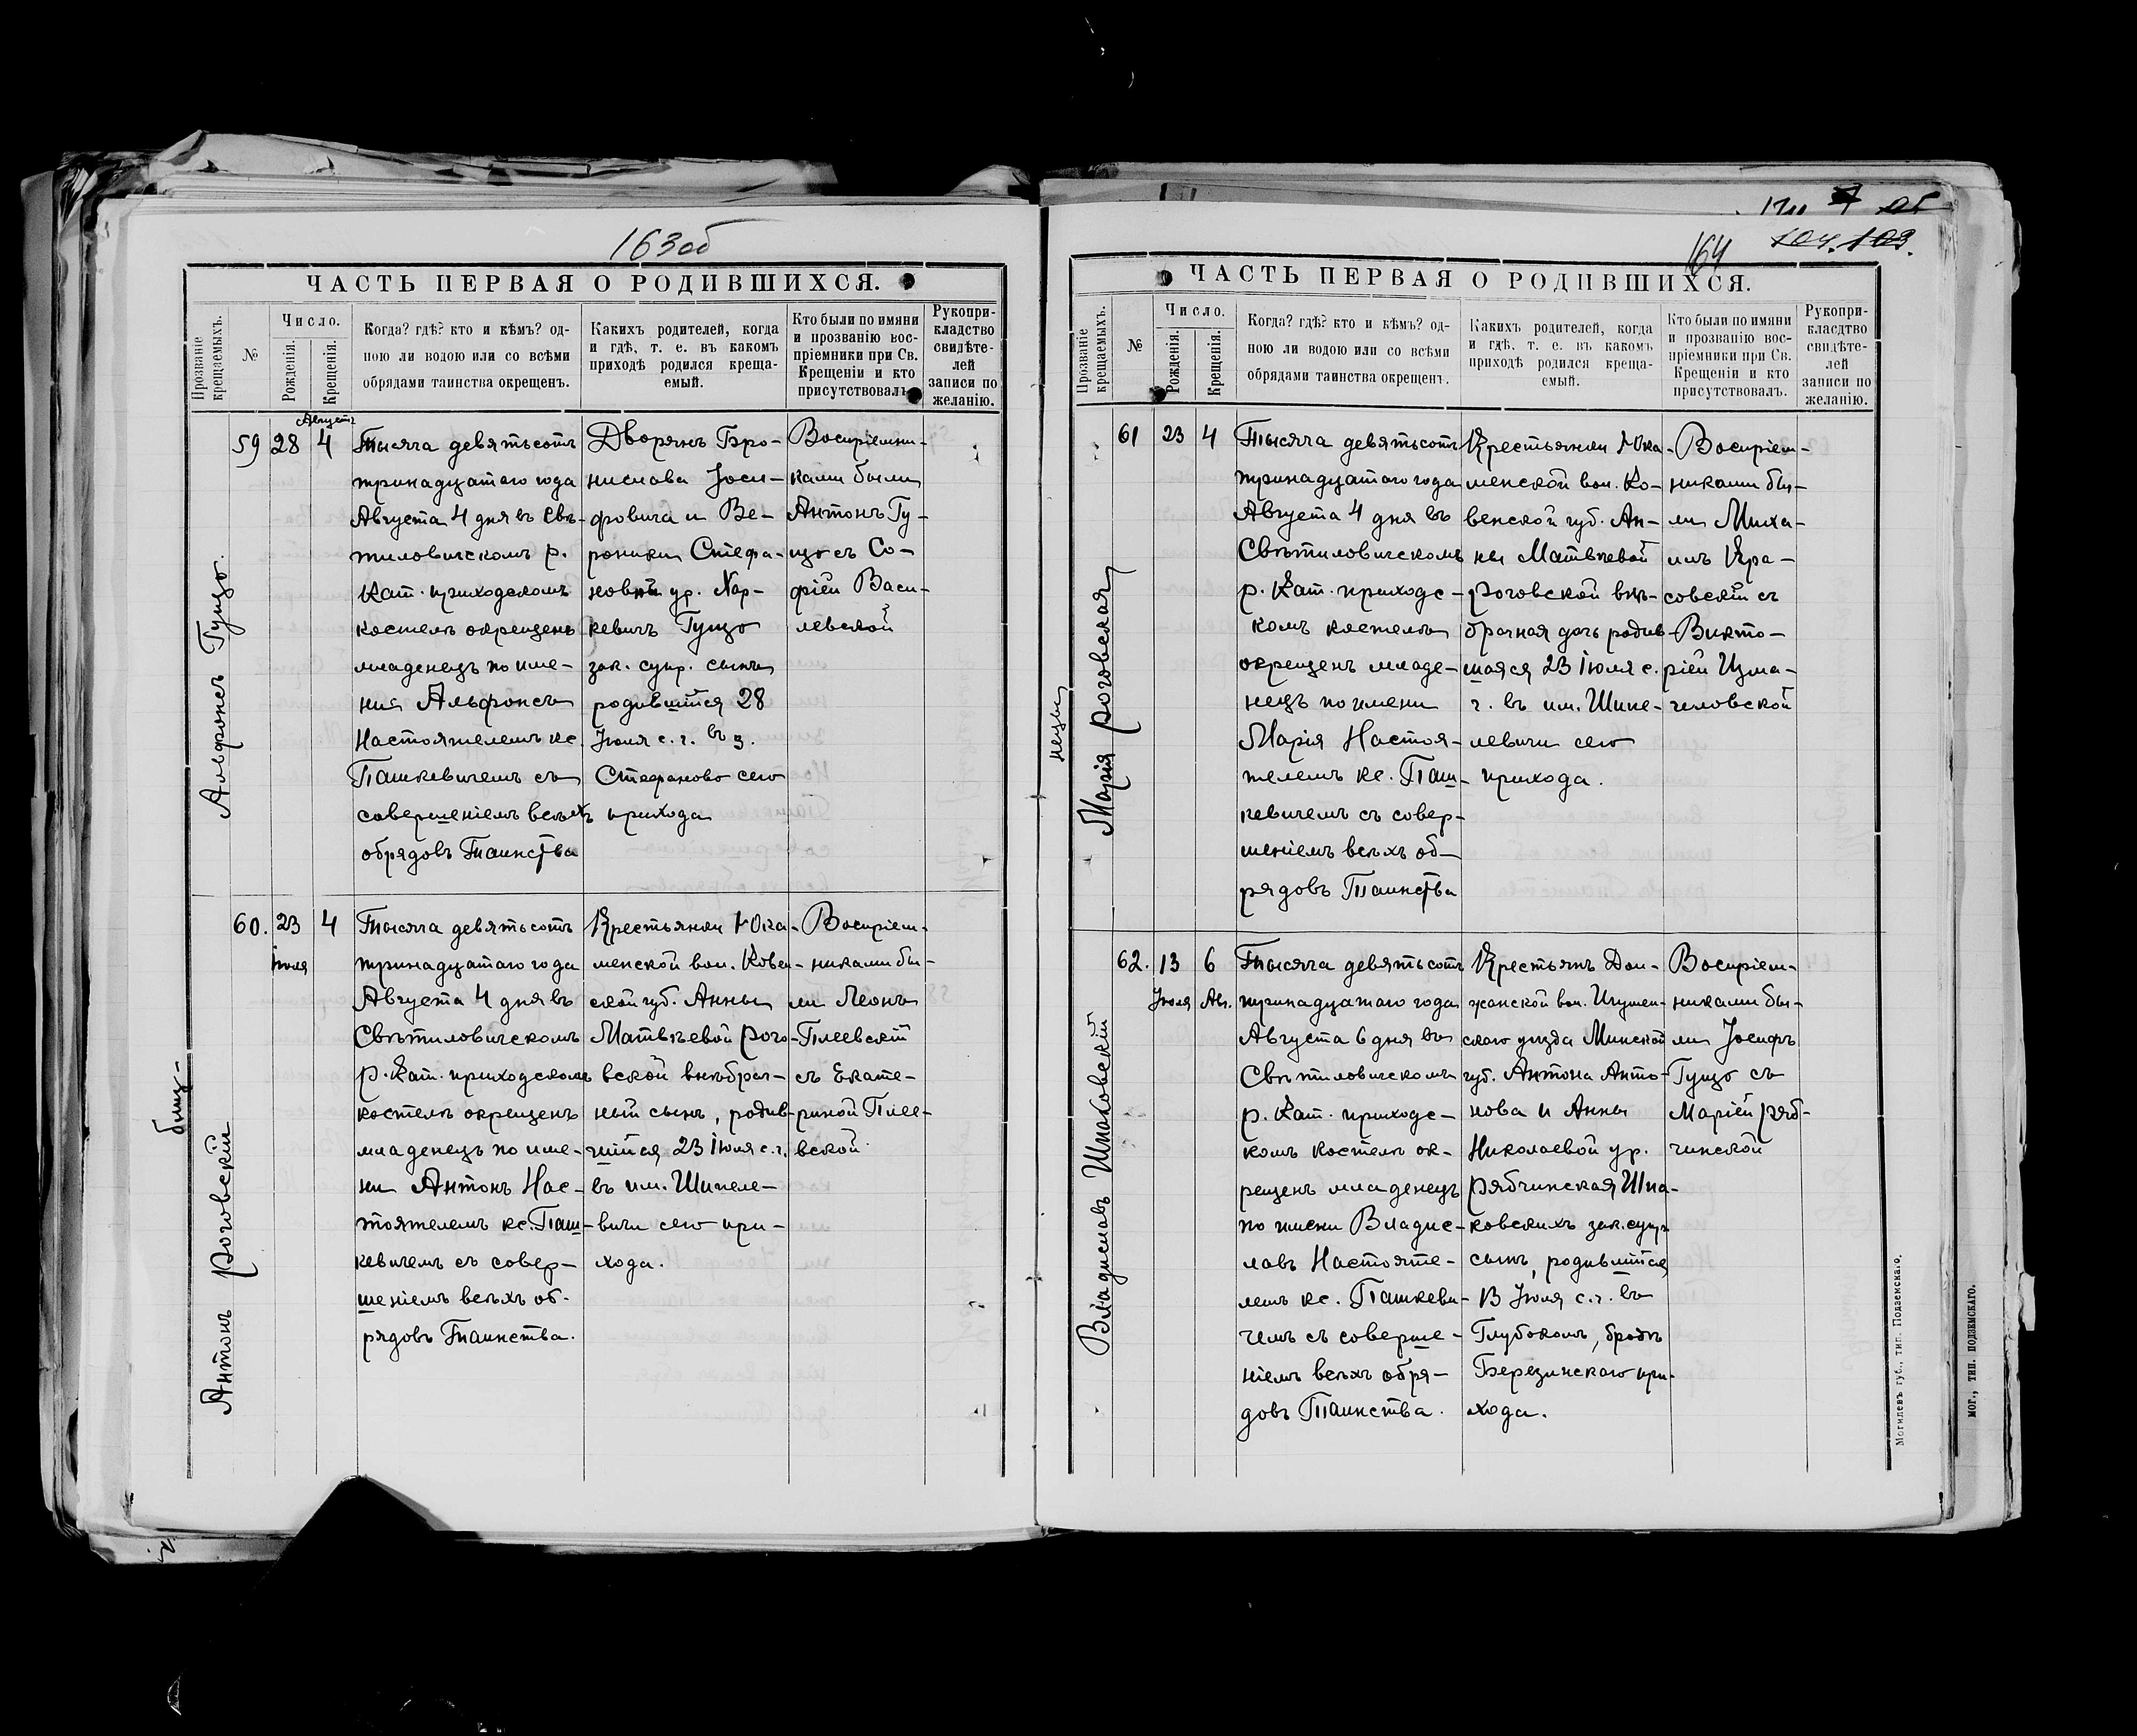 163об
ЧАСТЬ ПЕРВАЯ О РОДИВШИХСЯ.
Прозваніе крещаемыхъ.
№
Число.
Рожденія.
Крещенія.
Когда? гдѣ? кто и кѣмъ? од-
ною ли водою или со всѣми
обрядами таинства окрещенъ.
Какихъ родителей, когда
и гдѣ, т. е. въ какомъ
приходѣ родился креща-
емый.
Кто были по имяни
и прозванію вос-
пріемники при Св.
Крещеніи и кто
присутствовалъ.
Рукопри-
кладство
свидѣте-
лей
записи по
желанію.
Альфонсъ Гуцо.
59
28
Августъ
4
Тысяча девятьсотъ
тринадцатаго года
Августа 4 дня въ Свѣ-
тиловичскомъ р.
Кат. приходскомъ
костелѣ окрещенъ
младенецъ по име-
ния Альфонсъ
Настоятелемъ кс.
Пашкевичемъ съ
совершеніемъ всѣхъ
обрядовъ Таинства
Дворянъ Бро-
нислава Іоси-
фовича и Ве-
роники Стефа-
новны ур. Хар-
кевичъ Гуцо
зак. супр. сынъ
родившійся 28
Іюля с. г. въ з.
Стефаново сего
прихода
Воспріемни-
ками были
Антонъ Гу-
цо съ Со-
фіей Васи-
левской
близ-
Антонъ Роговскій
60.
23
Іюля
4
Тысяча девятьсотъ
тринадцатаго года
Августа 4 дня въ
Свѣтиловичскомъ
р. Кат. приходскомъ
костелѣ окрещенъ
младенецъ по име-
ни Антонъ Нас-
тоятелемъ кс. Паш-
кевичемъ съ совер-
шеніемъ всѣхъ об-
рядовъ Таинства.
Крестьянки Юка-
менской вол. Ковен-
ской губ. Анны
Матвѣевой Рого-
вской внѣбрач-
ный сынъ, родив-
шійся 23 Іюля с. г.
въ им. Шипеле-
вичи сего при-
хода.
Воспріем-
никами бы-
ли Леонъ
Плеевскій
съ Екате-
риной Плее-
вской
164
104. 103.
ЧАСТЬ ПЕРВАЯ О РОДИВШИХСЯ.
Прозваніе крещаемыхъ.
№
Число.
Рожденія.
Крещенія.
Когда? гдѣ? кто и кѣмъ? од-
ною ли водою или со всѣми
обрядами таинства окрещенъ.
Какихъ родителей, когда
и гдѣ, т. е. въ какомъ
приходѣ родился креща-
емый.
Кто были по имяни
и прозванію вос-
пріемники при Св.
Крещеніи и кто
присутствовалъ.
Рукопри-
класдтво
свидѣте-
лей
записи по
желанію.
нецы
Марія Роговская
61
23
4
Тысяча девятьсотъ
тринадцатаго года
Августа 4 дня въ
Свѣтиловичскомъ
р. Кат. приходс-
комъ костелѣ
окрещенъ младе-
нецъ по имени
Марія Настоя-
телемъ кс. Паш-
кевичемъ съ совер-
шеніемъ всѣхъ об-
рядовъ Таинства
Крестьянки Юка-
менской вол. Ко-
венской губ. Ан-
ны Матвѣевой
Роговской внѣ-
брачная дочь родив-
шаяся 23 Іюля с.
г. въ им. Шипе-
левичи сего
прихода.
Воспріем-
никами бы-
ли Миха-
илъ Кра-
совскій съ
Викто-
ріей Изма-
чиловской
Владиславъ Шпаковскій
62.
13
Іюля
6
Авг.
Тысяча девятьсотъ
тринадцатаго года
Августа 6 дня въ
Свѣтиловичскомъ
р. Кат. приходс-
комъ костелѣ ок-
рещенъ младенецъ
по имени Владис-
лавъ Настояте-
лемъ кс. Пашкеви-
чемъ съ соверше-
ніемъ всѣхъ обря-
довъ Таинства.
Крестьянъ Дол-
жанской вол. Игумен-
скаго уѣзда Минской
губ. Антона Анто-
нова и Анны
Николаевой ур.
Рябчинская Шпа-
ковскихъ зак. супр.
сынъ, родившійся
13 Іюля с. г. въ
Глубокомъ, бродѣ
Березинскаго при-
хода.
Воспріем-
никами бы-
ли Іосифъ
Гуцо съ
Маріей Ряб-
чинской
Могилевъ губ., тип. Подземскаго.
МОГ., ТИП. ПОДЗЕМСКАГО.